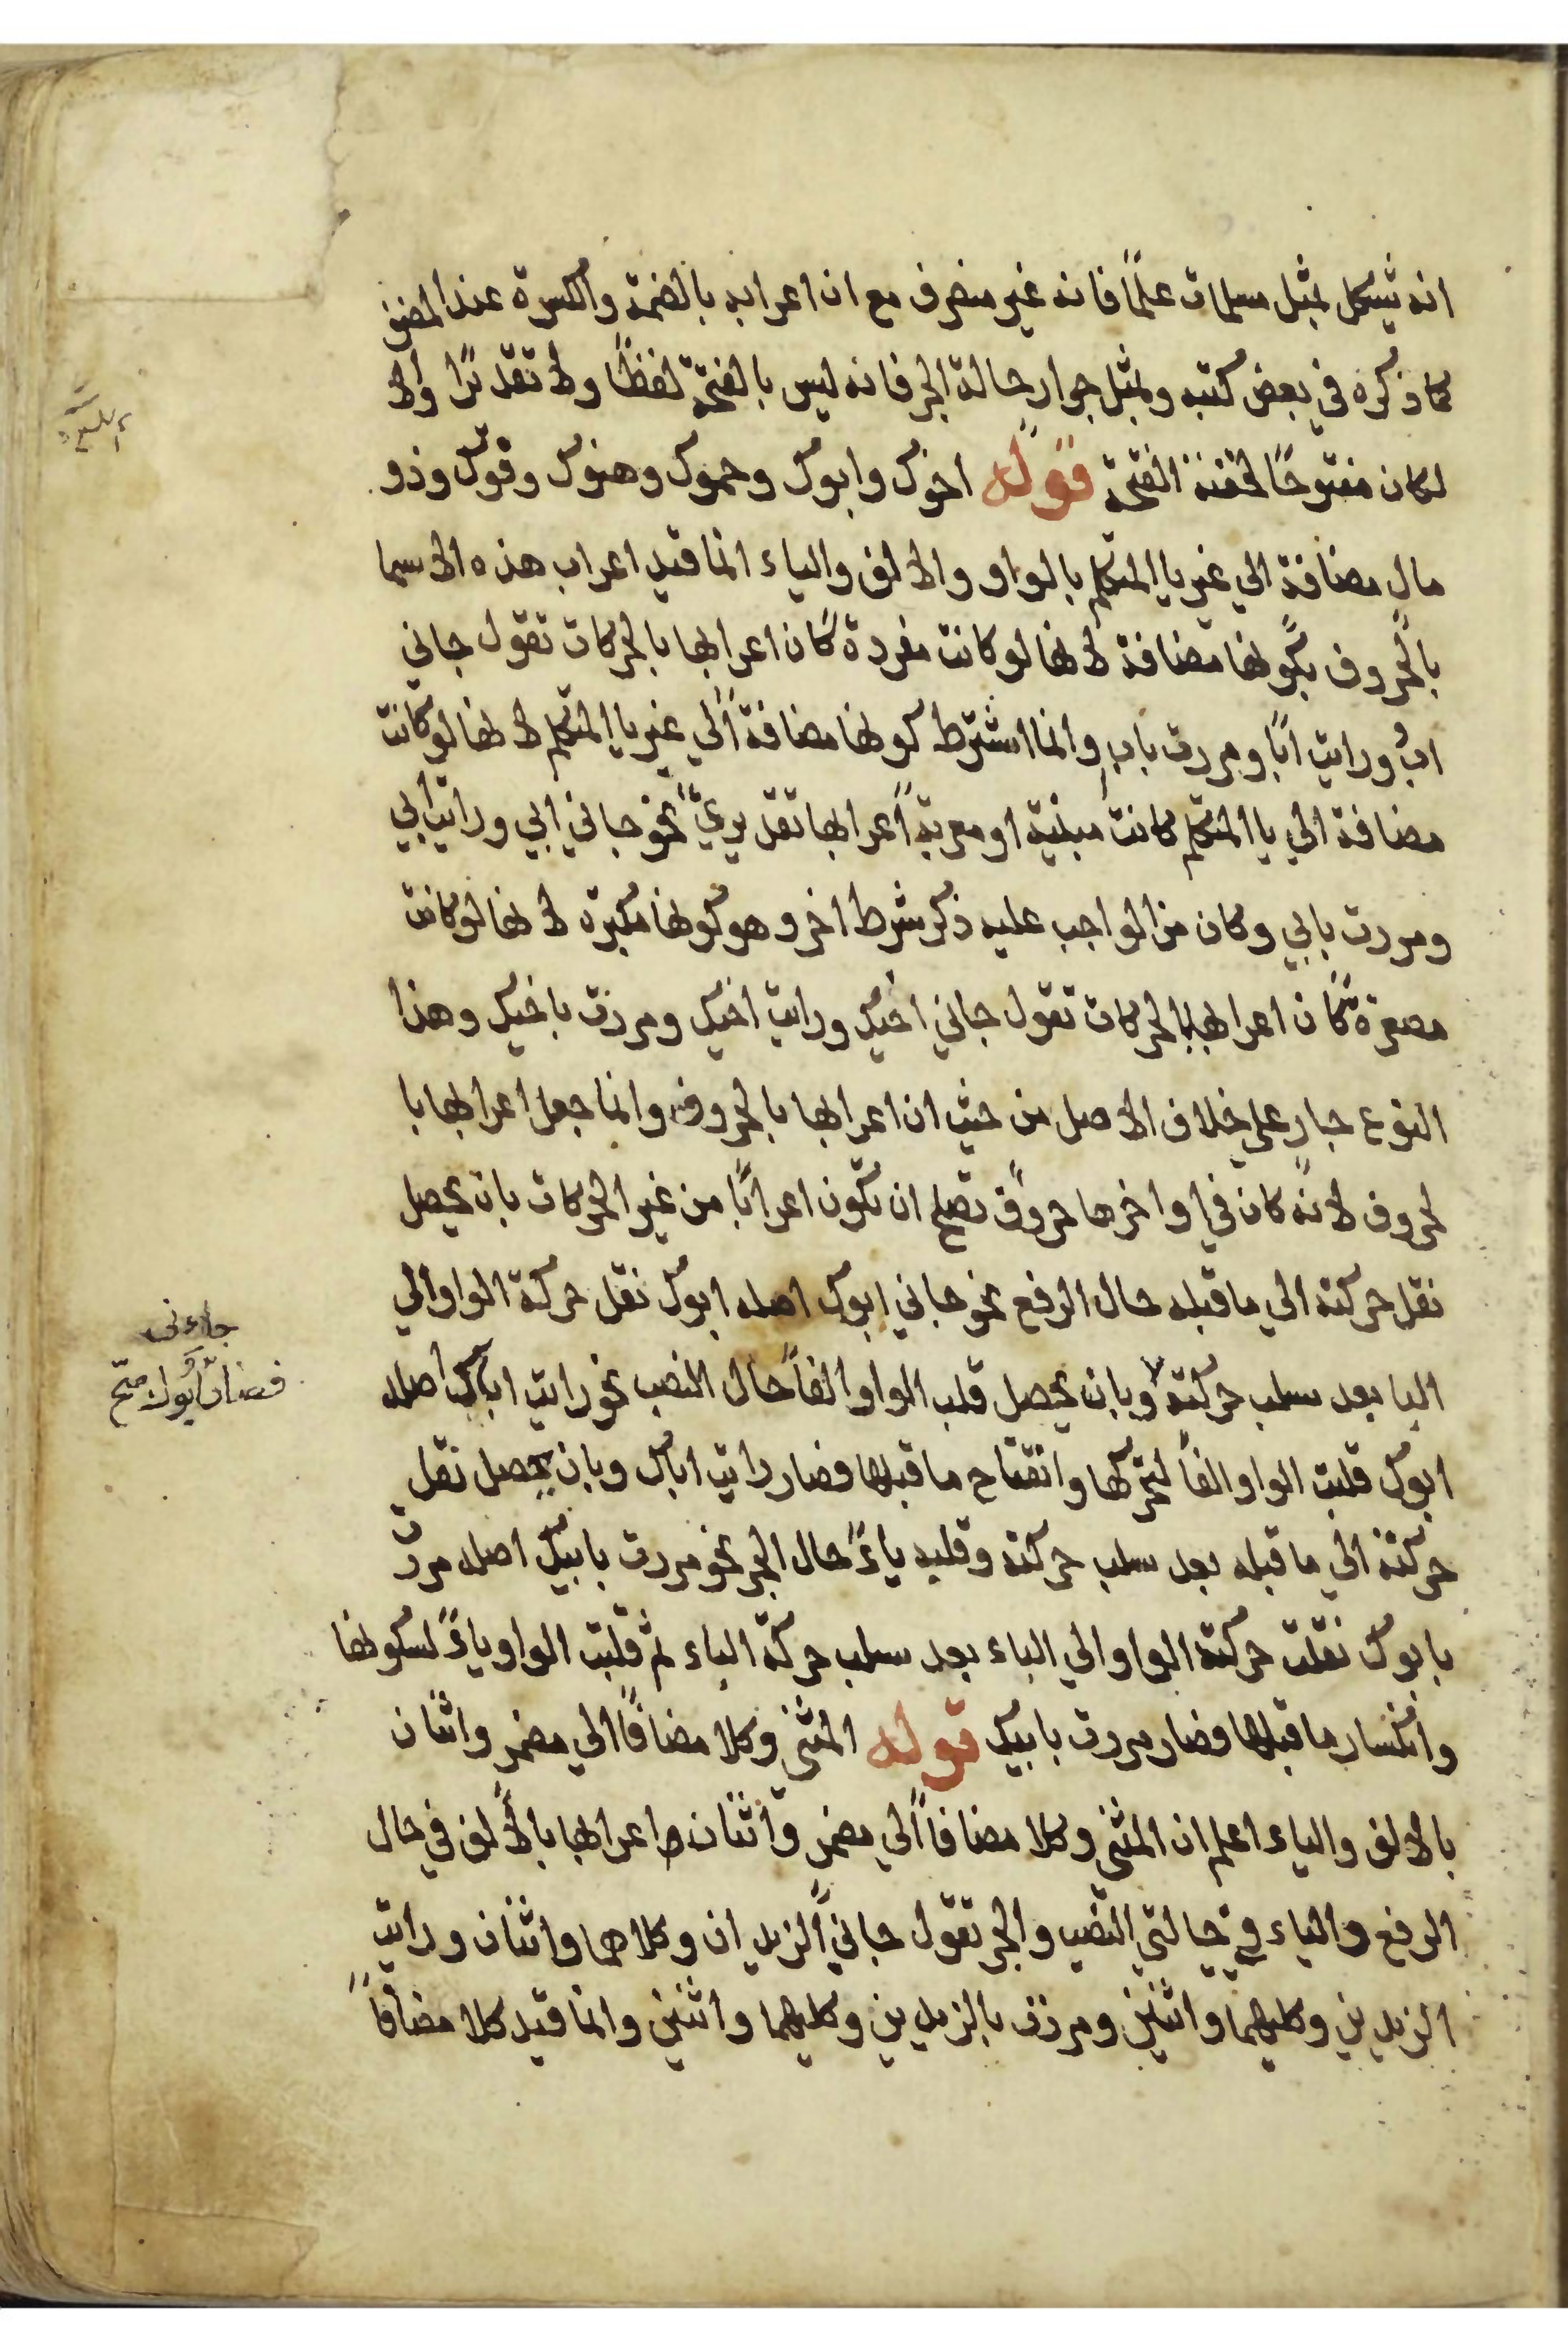 انه يشكل بمثل مسلمات علمًا فانه غير منصرف مع ان اعرابه بالضمة والكسرة عند المصنف
كما ذكره في بعض كتبه وبمثل جوار حالة الجر فانه ليس بالفتحة لفظًا ولا تقديرًا والا
لكان مفتوحًا لخفة الفتحة قوله اخوك وابوك وحموك وهنوك وفوك وذو
مال مضافة الي غير يا المتكلم بالواو والالف والياء انما قيد اعراب هذه الاسما
بالحروف بكونها مضافة لانها لو كانت مفردة كان اعرابها بالحركات تقول جاني
ابٌ ورايت ابًا ومررت بابٍ وانما اشترط كونها مضافة الي غير يا المتكلم لانها لو كانت
مضافة الي يا المتكلم كانت مبنية او معربة اعرابها تقديريّ نحو جاني ابي ورايت ابي
ومررت بابي وكان من الواجب عليه ذكر شرط اخر وهو كونها مكبرة لانها لو كانت
مصغرة كان اعرابها بالحركات تقول جاني اخيك ورايت اخيك ومررت باخيك وهذا
النوع جار على خلاف الاصل من حيث ان اعرابها بالحروف وانما جعل اعرابها با
لحروف لانه كان في اواخرها حروف تصلح ان تكون اعرابًا من غير الحركات بان يحصل
نقل حركته الي ما قبله حال الرفع نحو جاني ابوك اصله ابوك نقل حركة الواو الي
البا بعد سلب حركته وبان يحصل قلب الواو الفاً حال النصب نحو رايت اباك اصله
ابوك قلبت الواو الفاً لتحركها وانفتاح ما قبلها فصار رايت اباك وبان يحصل نقل
حركته الي ما قبله بعد سلب حركته وقلبه ياءً حال الجر نحو مررت بابيك اصله مررت
بابوك نقلت حركة الواو الي الباء بعد سلب حركة الباء ثم قلبت الواو ياءً لسكونها
وانكسار ما قبلها فصار مررت بابيك قوله المثنى وكلا مضافاً الي مضمر واثنان
بالالف والياء اعلم ان المثنى وكلا مضافاً الي مضمر واثنان اعرابها بالالف في حال
الرفع والياء في حالتي النصب والجر تقول جاني الزيدان وكلاهما واثنان ورايت
الزيدين وكليهما واثنين ومررت بالزيدين وكليهما واثنين وانما قيد كلا مضافاً
جاءنى
فصار ابوك صح